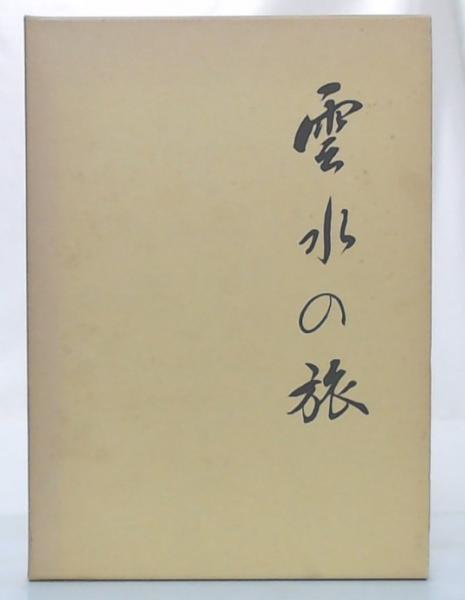 雲水の旅